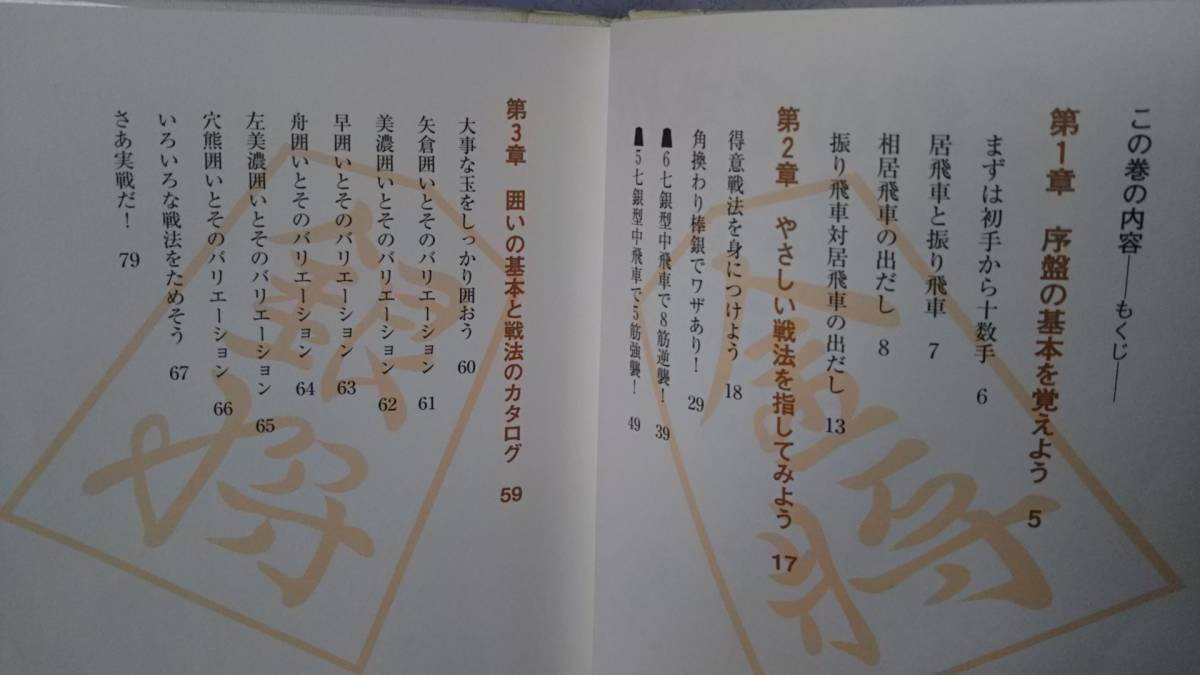 この巻の内容――もくじ――
第1章 序盤の基本を覚えよう 5
まずは初手から十数手 6
居飛車と振り飛車 7
相居飛車の出だし 8
振り飛車対居飛車の出だし 13
第2章 やさしい戦法を指してみよう 17
得意戦法を身につけよう 18
角換わり棒銀でワザあり! 29
☗6七銀型中飛車で8筋逆襲! 39
☗5七銀型中飛車で5筋強襲! 49
第3章 囲いの基本と戦法のカタログ 59
大事な玉をしっかり囲おう 60
矢倉囲いとそのバリエーション 61
美濃囲いとそのバリエーション 62
早囲いとそのバリエーション 63
舟囲いとそのバリエーション 64
左美濃囲いとそのバリエーション 65
穴熊囲いとそのバリエーション 66
いろいろな戦法をためそう 67
さあ実戦だ! 79
金将
銀将